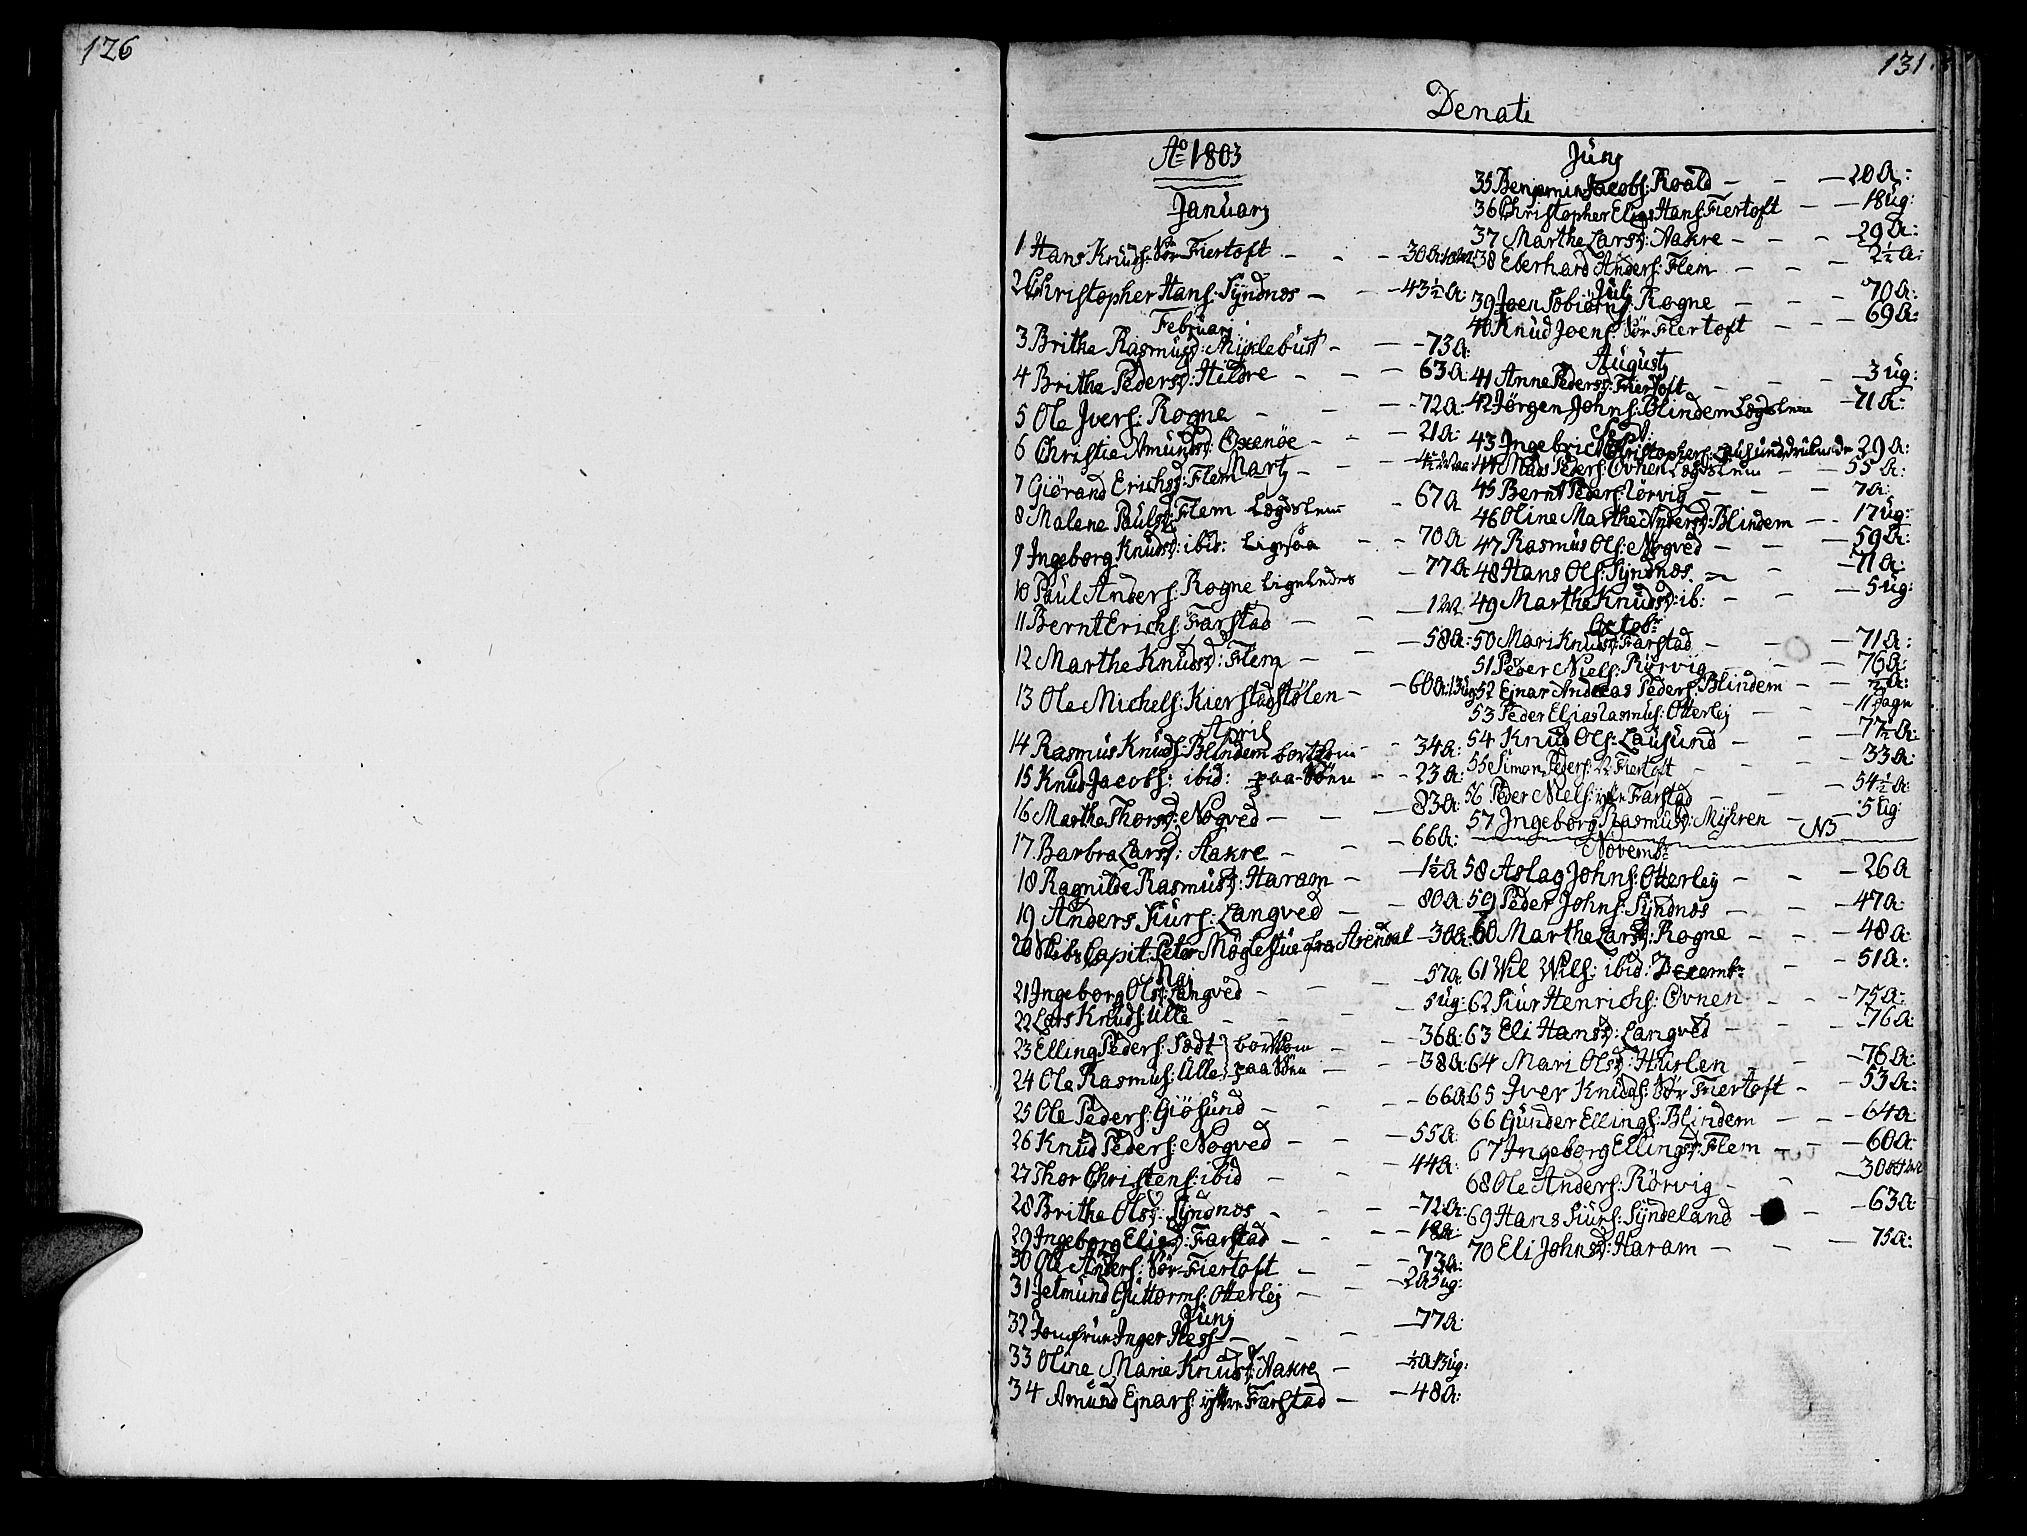 126
131
Denati
Ao 1803
Januarj
1 Hans Knuds: Nør Fiertoft - - - 30 a:
2 Christopher Hans: Syndnæs - - 43½ a:
Februarj
3 Brithe Rasmusd: Myklebust - - 73 a:
4 Brithe Pedersd: Hildre - - - 63 a
5 Ole Ivers: Rogne - - - 72 a:
6 Christie Amundsd: Oxenøe - - - 21 a:
Martj
7 Giørand Erichsd: Flem -
8 Malene Paulsd: Flem Lægdslem - 67 a
9 Ingeborg Knudsd: ibid: Ligesaa - - 70 a
10 Paul Anders: Rogne Ligeledes - 77 a
11 Bernt Erichs: Farstad - - - 12
12 Marthe Knudsd: Flem - - - 58 a:
13 Ole Michels: Kierstadstølen - - 60 a: 13 ug
April
14 Rasmus Knuds: Blindem bortkom - - 34 a:
15 Knud Jacobs: ibid: paa Søen - - 23 a:
16 Marthe Thorsd: Nogved - - - 83 a:
17 Barbra Larsd: Aakre - - - 66 a:
18 Ragnilde Rasmusd: Haram - - 1½ a
19 Anders Siurs: Langved - - 80 a:
20 Skibs Capit: Peter Møglestue fra Arendal - 30 a:
Maj
21 Ingeborg Olsd: Langved - - - 57 a:
22 Lars Knuds: Ulle - - - 5 ug:
23 Elling Peders: Sædt } bortkom - - 36 a:
24 Ole Rasmus: Ulle } paa Søen - - 38 a:
25 Ole Peders: Giøsund - - - 66 a:
26 Knud Peders: Nogved - - - 55 a:
27 Thor Christens: ibid - - - 44 a:
28 Brithe Olsd: Syndnæs - - - 72 a:
29 Ingeborg Eliasd: Farstad - - - 18 a:
30 Ole Anders: Sør-Fiertoft - - - 73 a:
31 Jetmund Guttorms: Otterlej - - 2 a 5 ug:
Junj
32 Jomfrue Inger Hess - - - 77 a:
33 Oline Marie Knudsd: Aakre - - ½ a 13 ug:
34 Amund Ejnars: yttre Farstad - - 48 a:
Junj
35 Benjamin Jacobs: Roald - - - 20 a:
36 Christopher Elias Hans: Fiertoft - - 18 ug:
37 Marthe Larsd: Aakre - - - 29 a:
38 Eberhard Anders: Flem - - - 2½ a:
Juli
39 Joen Sebiørns: Rogne - - - 70 a:
40 Knud Joens: Sør Fiertoft - - - 69 a:
Augustj
41 Anne Pedersd: Fiertoft - - - 3 ug:
42 Jørgen Johns: Blindem Lægdslem - 71 a:
Sept:
43 Ingebrict Christophers: Lausund druknede 29 a:
44 Mads Peders: Ovnen Lægdslem - - 55 a:
45 Bernt Peders: Rørvig - - - 7 a:
46 Oline Marthe Andersd: Blindem - - 17 ug:
47 Rasmus Ols: Nogved - - - 59 a:
48 Hans Ols: Syndnæs - - 71 a:
49 Marthe Knudsd: ib: - - - 5 ug:
Octobr
50 Mari Knudsd: Farstad - - - 71 a:
51 Peder Niels: Rørvig - - - 76 a:
52 Ejnar Andreas Peders: Blindem - - ½ a:
53 Peder Elias Rasmus: Otterlej - - 11 Dage
54 Knud Ols: Lausund - - - 77½ a:
55 Simon Peders: Fiertoft - - - 33 a:
56 Peder Niels: yttre Farstad - - - 54½ a:
57 Ingeborg Rasmusd: Myhren - - 5 ug
NB
Novembr
58 Aslag Johns: Otterlej - - - 26 a
59 Peder Johns: Syndnæs - - - 47 a:
60 Marthe Larsd: Rogne - - - 48 a:
61 Wil Wils: ibid: - - 51 a:
Decembr
62 Siur Henrichs: Ovnen - - - 75 a:
63 Eli Hansd: Langved - - - 76 a:
64 Mari Olsd: Hurlen - - 76 a:
65 Iver Knuds: Sør Fiertoft - - 53 a:
66 Gunder Ellings: Blindem - - - 64 a:
67 Ingeborg Ellingsd: Flem - - - 60 a:
68 Ole Anders: Rørvig - - - 30
69 Hans Siurs: Syndeland - - 63 a:
70 Eli Johnsd: Haram - - - 75 a: